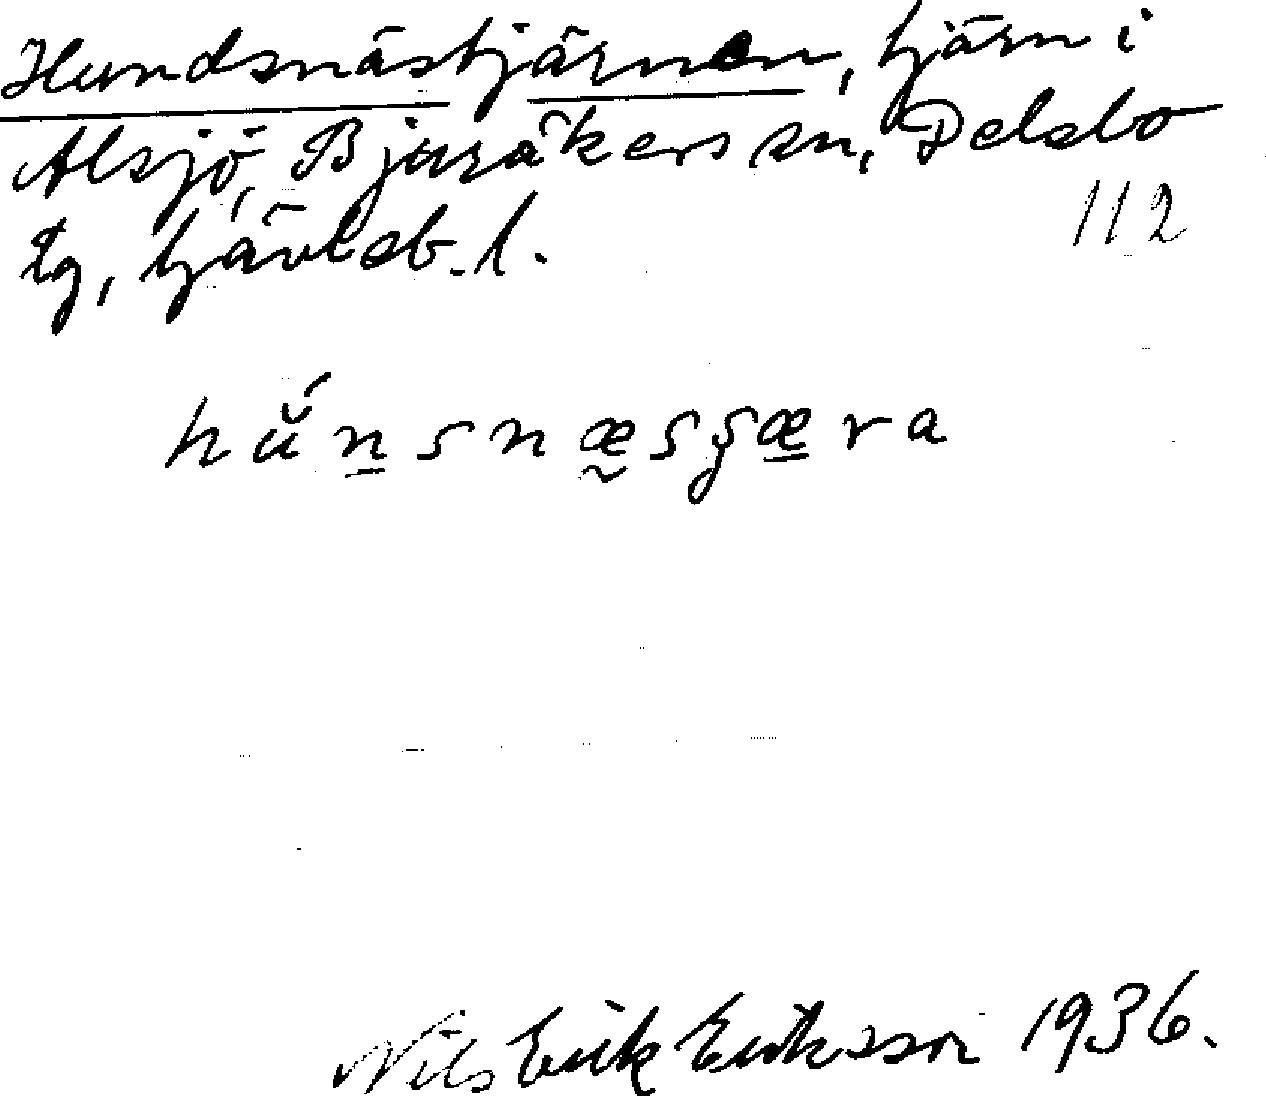 Hundsnästjärnen, tjärn i
Alsjö, Bjuråkers sn, Delsbo
tg, Gävleb. l.
112
hŭ́n̲snæ̰sʂæ̲ra
Nils Erik Eriksson 1936.